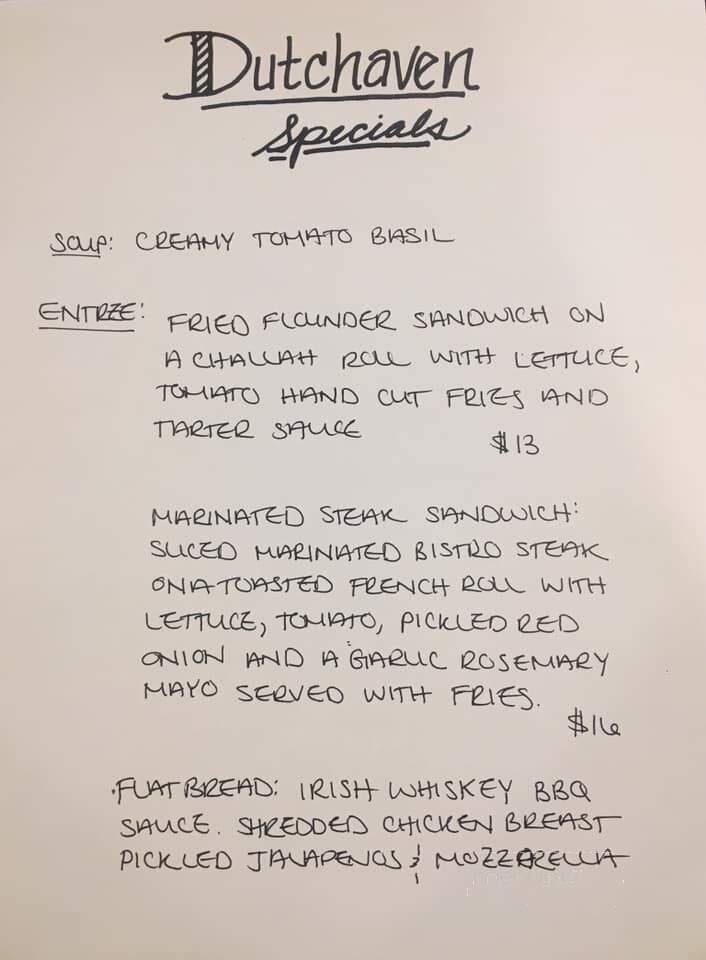 Dutchaven
Specials
SOUP: CREAMY TOMATO BASIL
ENTREE: FRIED FLOUNDER SANDWICH ON
A CHALLAH ROLL WITH LETTUCE,
TOMATO HAND CUT FRIES AND
TARTER SAUCE $13
MARINATED STEAK SANDWICH:
SLICED MARINATED BISTRO STEAK
ON A TOASTED FRENCH ROLL WITH
LETTUCE, TOMATO, PICKLED RED
ONION AND A GARLIC ROSEMARY
MAYO SERVED WITH FRIES.
$16
·FLATBREAD: IRISH WHISKEY BBQ
SAUCE. SHREDDED CHICKEN BREAST
PICKLED JALAPENOS & MOZZARELLA